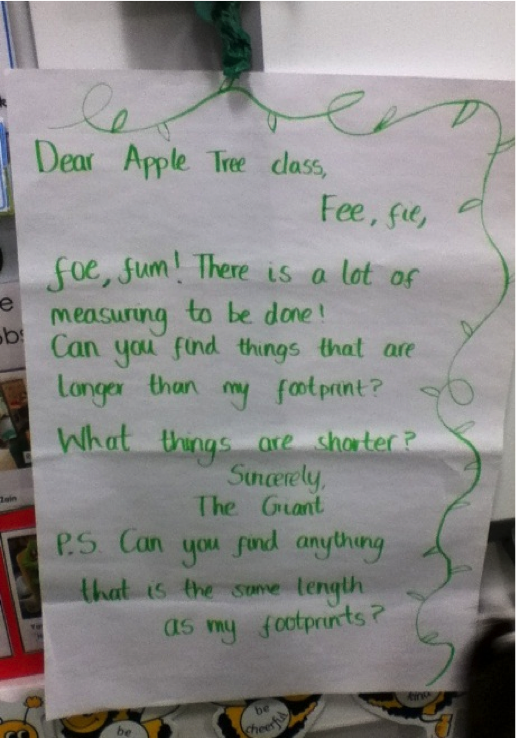 Dear Apple Tree class,
Fee, fie,
foe, fum! There is a lot of
measuring to be done!
Can you find things that are
longer than my footprint?
What things are shorter?
Sincerely,
The Giant
P.S. Can you find anything
that is the same length
as my footprints?
be
be
cheerful
kind